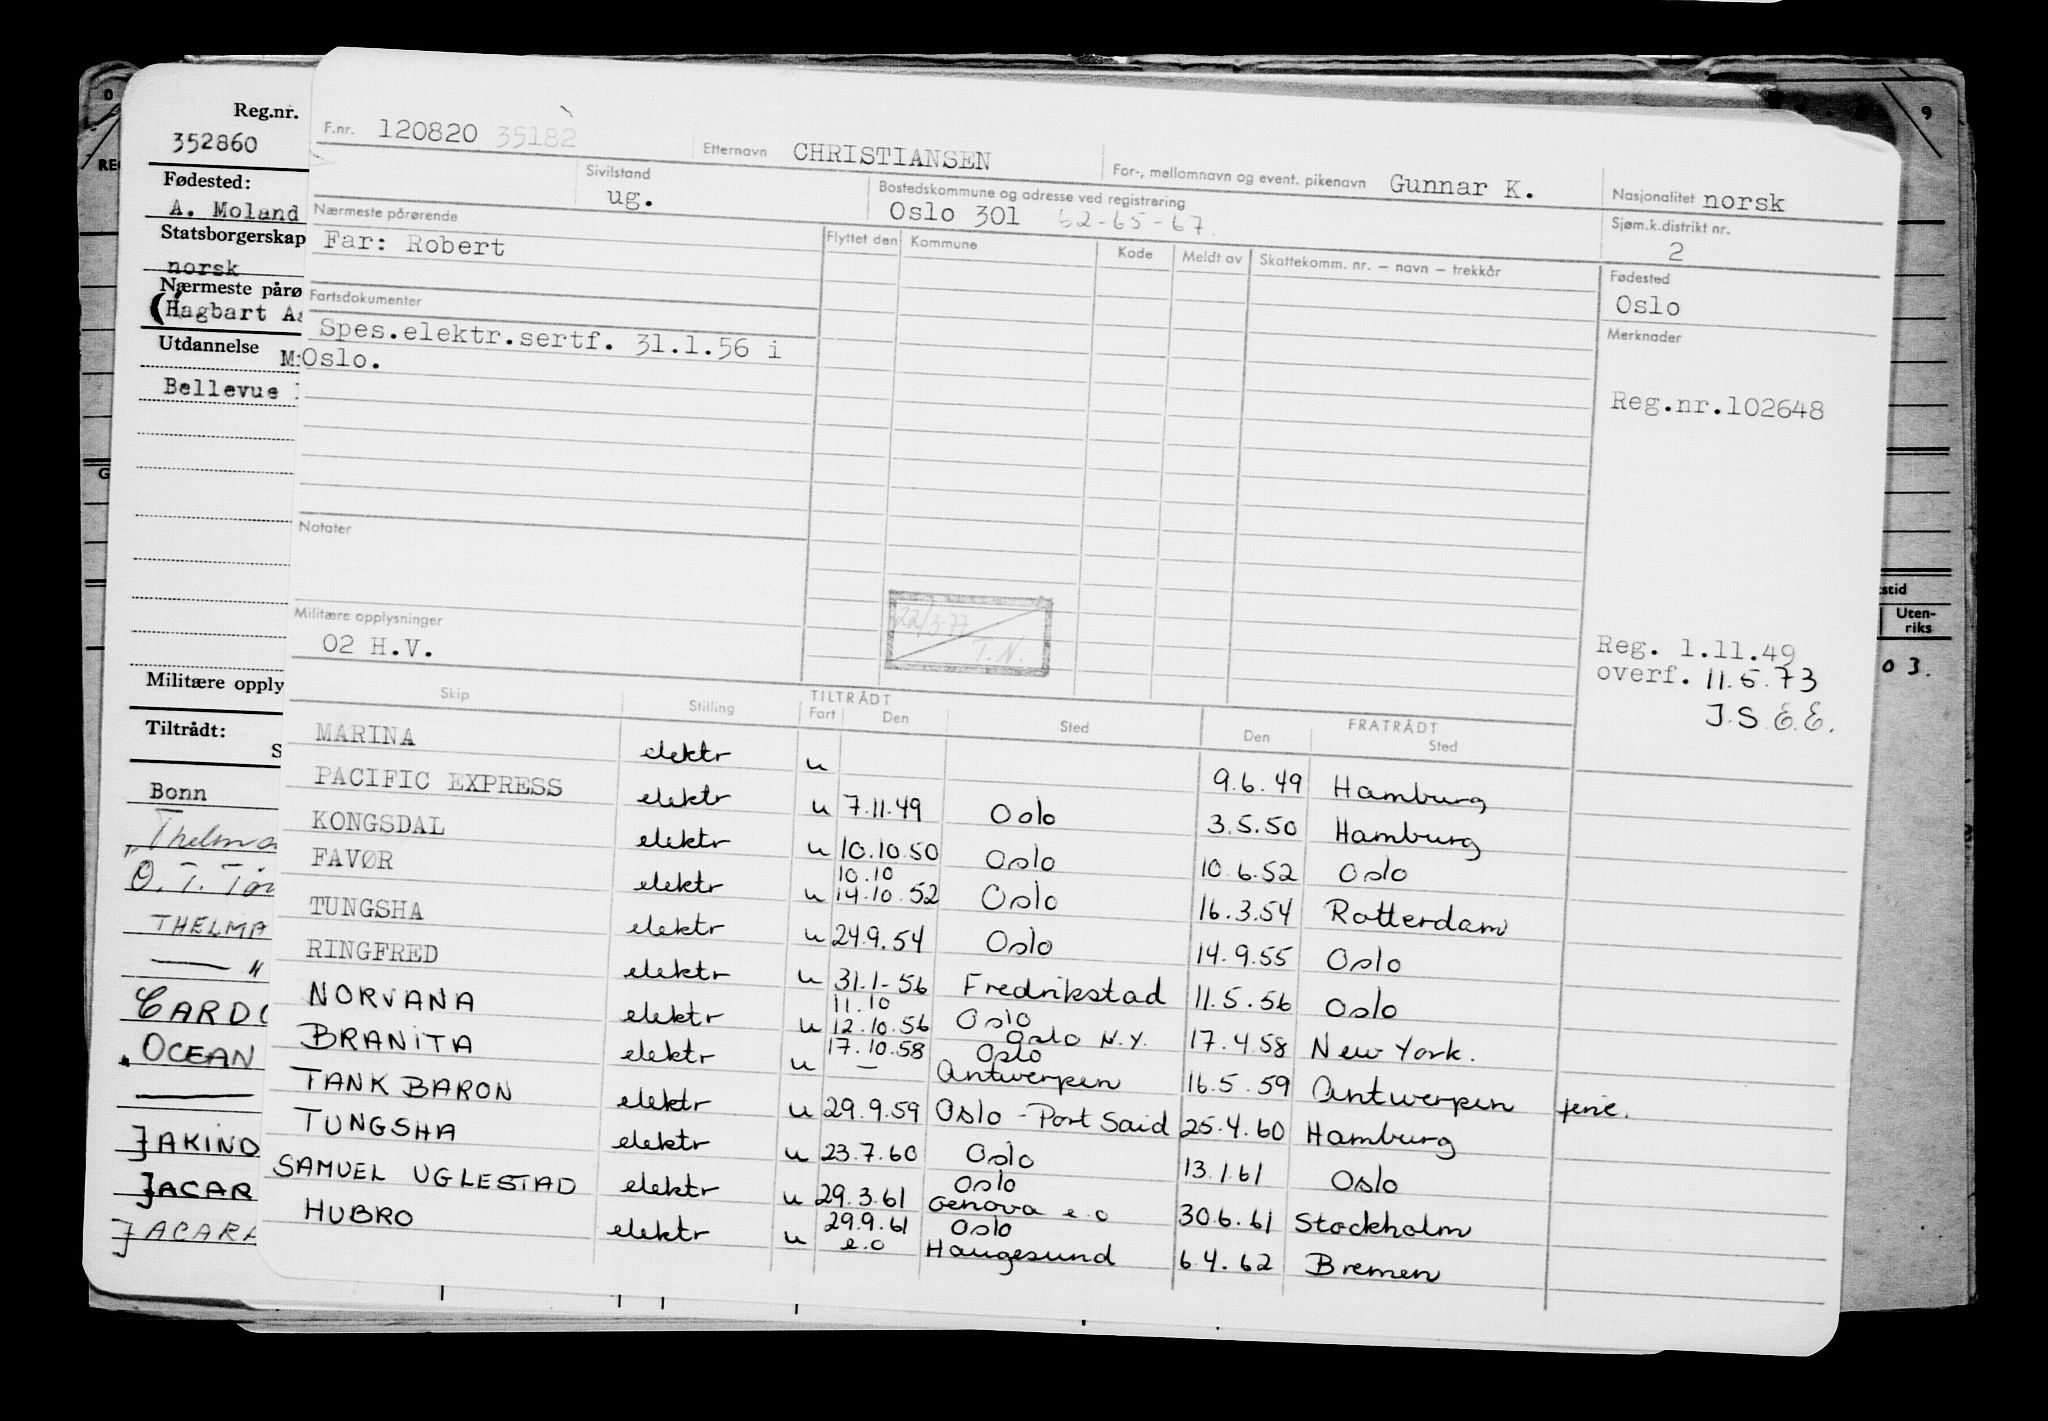 Reg.nr.
352860
Fødested:
A. Moland
Statsborgerskap
norsk
Nærmeste pårø
(Hagbart As
Utdannelse
Bellevue
Militære opply
Tiltrådt:
S
Bonn
Thelma
O. T. Tøn
THELMA
— "
CARDO
OCEAN
JAKIND
JACAR
JACARA
F.nr. 120820 35182
Etternavn CHRISTIANSEN
For-, mellomnavn og event. pikenavn Gunnar K.
Nasjonalitet norsk
Sivilstand
ug.
Bostedskommune og adresse ved registrering
Oslo 301 62-65-67.
Sjøm.k.distrikt nr.
2
Nærmeste pårørende
Far: Robert
Flyttet den Kommune Kode Meldt av Skattekomm. nr. – navn – trekkår
Fødested
Oslo
Fartsdokumenter
Spes.elektr.sertf. 31.1.56 i
Oslo.
Merknader
Reg.nr.102648
Notater
Militære opplysninger
02 H.V.
22/3-77
T.N.
Reg. 1.11.49
overf. 11.5.73
J.S.E.E.
Skip Stilling TILTRÅDT Fart Den Sted FRATRÅDT Den Sted
MARINA elektr u 9.6.49 Hamburg
PACIFIC EXPRESS elektr u 7.11.49 Oslo 3.5.50 Hamburg
KONGSDAL elektr u 10.10.50 Oslo 10.6.52 Oslo
FAVØR elektr u 10.10 14.10.52 Oslo 16.3.54 Rotterdam
TUNGSHA elektr u 24.9.54 Oslo 14.9.55 Oslo
RINGFRED elektr u 31.1-56 Fredrikstad 11.5.56 Oslo
NORVANA elektr u 11.10 12.10.56 Oslo Oslo N.Y. 17.4.58 New York.
BRANITA elektr u 17.10.58 — Oslo Antwerpen 16.5.59 Antwerpen ferie.
TANK BARON elektr u 29.9.59 Oslo - Port Said 25.4.60 Hamburg
TUNGSHA elektr u 23.7.60 Oslo 13.1.61 Oslo
SAMUEL UGLESTAD elektr u 29.3.61 Oslo Genova e.o 30.6.61 Stockholm
HUBRO elektr u 29.9.61 e.o Oslo Haugesund 6.4.62 Bremen
9
stid
Uten-
riks
03.